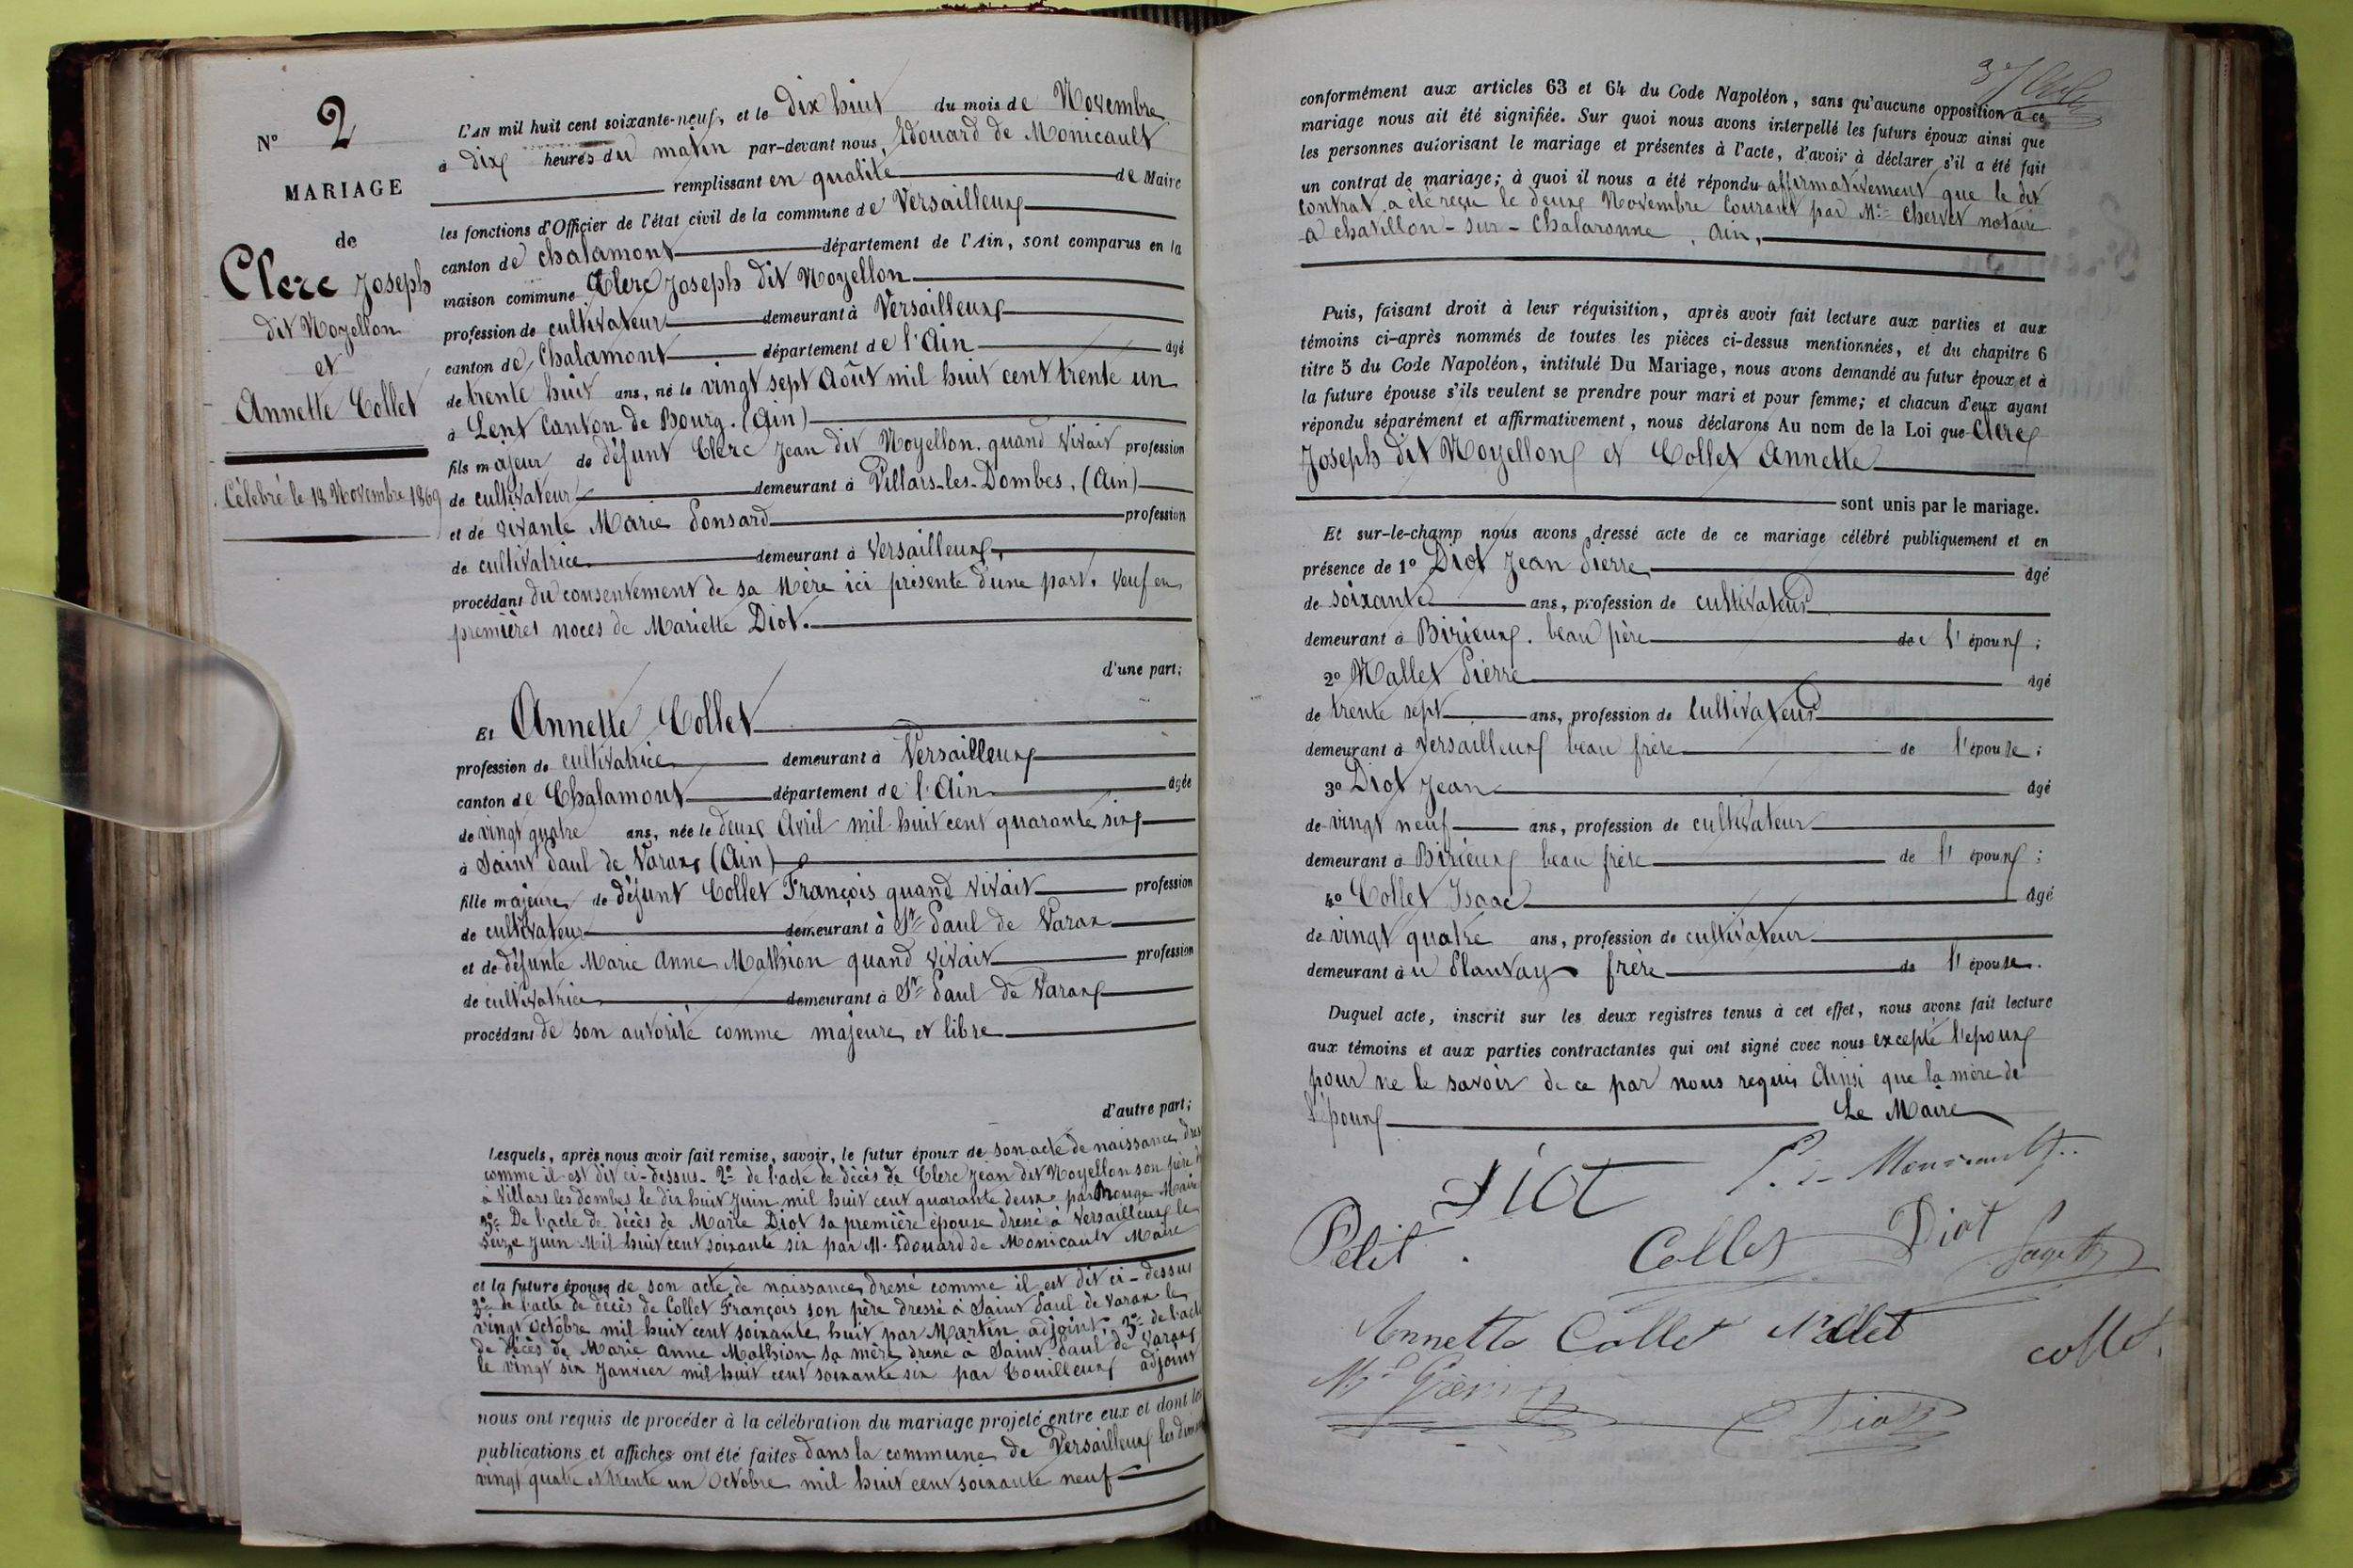 N° 2
MARIAGE
de
Clerc Joseph
dit Noyellon
et
Annette Collet
Célébré le 18 Novembre 1869
L'AN mil huit cent soixante-neuf, et le dix huit du mois de Novembre
à dix heures du matin par-devant nous, Edouard de Monicault
remplissant en qualité de Maire
les fonctions d'Officier de l'état civil de la commune de Versailleux
canton de Chalamont département de l'Ain, sont comparus en la
maison commune Clerc Joseph dit Noyellon
profession de cultivateur demeurant à Versailleux
canton de Chalamont département de l'Ain âgé
de trente huit ans, né le vingt sept Août mil huit cent trente un
à Lent Canton de Bourg. (Ain)
fils majeur de défunt Clerc Jean dit Noyellon. quand vivait profession
de cultivateur demeurant à Villars-les-Dombes, (Ain)
et de vivante Marie Ponsard profession
de cultivatrice demeurant à Versailleux,
procédant du consentement de sa Mère ici présente d'une part. Veuf en
premières noces de Mariette Diot.
d'une part;
Et Annette Collet
profession de cultivatrice demeurant à Versailleux
canton de Chalamont département de l'Ain âgée
de vingt quatre ans, née le deux Avril mil huit cent quarante six
à Saint Paul de Varax (Ain)
fille majeure de défunt Collet François quand vivait profession
de cultivateur demeurant à St Paul de Varax
et de défunte Marie Anne Mathion quand vivait profession
de cultivatrice demeurant à St Paul de Varax
procédant de son autorité comme majeure et libre
d'autre part;
Lesquels, après nous avoir fait remise, savoir, le futur époux de son acte de naissance
comme il est dit ci-dessus. 2° de l'acte de décès de Clerc Jean dit Noyellon son père
à Villars les dombes le dix huit Juin mil huit cent quarante deux par Monge Maire
3° De l'acte de décès de Marie Diot sa première épouse dressé à Versailleux le
seize Juin Mil huit cent soixante six par M. Edouard de Monicault Maire
et la future épouse de son acte de naissance dressé comme il est dit ci-dessus
2° de l'acte de décès de Collet François son père dressé à Saint Paul de Varax le
vingt octobre mil huit cent soixante huit par Martin adjoint. 3° de l'acte
de décès de Marie Anne Mathion sa mère dressé à Saint Paul de Varax
le vingt six Janvier mil huit cent soixante six par Touilleux adjoint
nous ont requis de procéder à la célébration du mariage projeté entre eux et dont les
publications et affiches ont été faites dans la commune de Versailleux les
vingt quatre et trente un Octobre mil huit cent soixante neuf
conformément aux articles 63 et 64 du Code Napoléon, sans qu'aucune opposition à ce
mariage nous ait été signifiée. Sur quoi nous avons interpellé les futurs époux ainsi que
les personnes autorisant le mariage et présentes à l'acte, d'avoir à déclarer s'il a été fait
un contrat de mariage; à quoi il nous a été répondu affirmativement que le dit
Contrat a été reçu le deux Novembre Courant par Me Chervet notaire
à Chatillon-sur-Chalaronne, Ain,
Puis, faisant droit à leur réquisition, après avoir fait lecture aux parties et aux
témoins ci-après nommés de toutes les pièces ci-dessus mentionnées, et du chapitre 6
titre 5 du Code Napoléon, intitulé Du Mariage, nous avons demandé au futur époux et à
la future épouse s'ils veulent se prendre pour mari et pour femme; et chacun d'eux ayant
répondu séparément et affirmativement, nous déclarons Au nom de la Loi que Clerc
Joseph dit Noyellon et Collet Annette
sont unis par le mariage.
Et sur-le-champ nous avons dressé acte de ce mariage célébré publiquement et en
présence de 1° Diot Jean Pierre âgé
de soixante ans, profession de cultivateur
demeurant à Birieux. beau père de l'époux;
2° Mallet Pierre âgé
de trente sept ans, profession de Cultivateur
demeurant à Versailleux beau frère de l'épouse;
3° Diot Jean âgé
de vingt neuf ans, profession de cultivateur
demeurant à Birieux beau frère de l'époux;
4° Collet Isaac âgé
de vingt quatre ans, profession de cultivateur
demeurant à u Plantay frère de l'épouse.
Duquel acte, inscrit sur les deux registres tenus à cet effet, nous avons fait lecture
aux témoins et aux parties contractantes qui ont signé avec nous excepté l'époux
pour ne le savoir de ce par nous requis Ainsi que la mère de
l'époux Le Maire
Diot
Monicault
Petit.
Collet
Diot
Annette Collet
Mallet
collet.
Diot